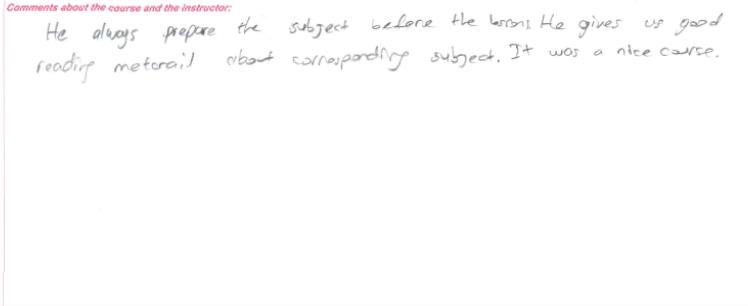 Comments about the course and the instructor:
He always prepare the subject before the lessons He gives us good
reading meterail about corresponding subject. It was a nice course.